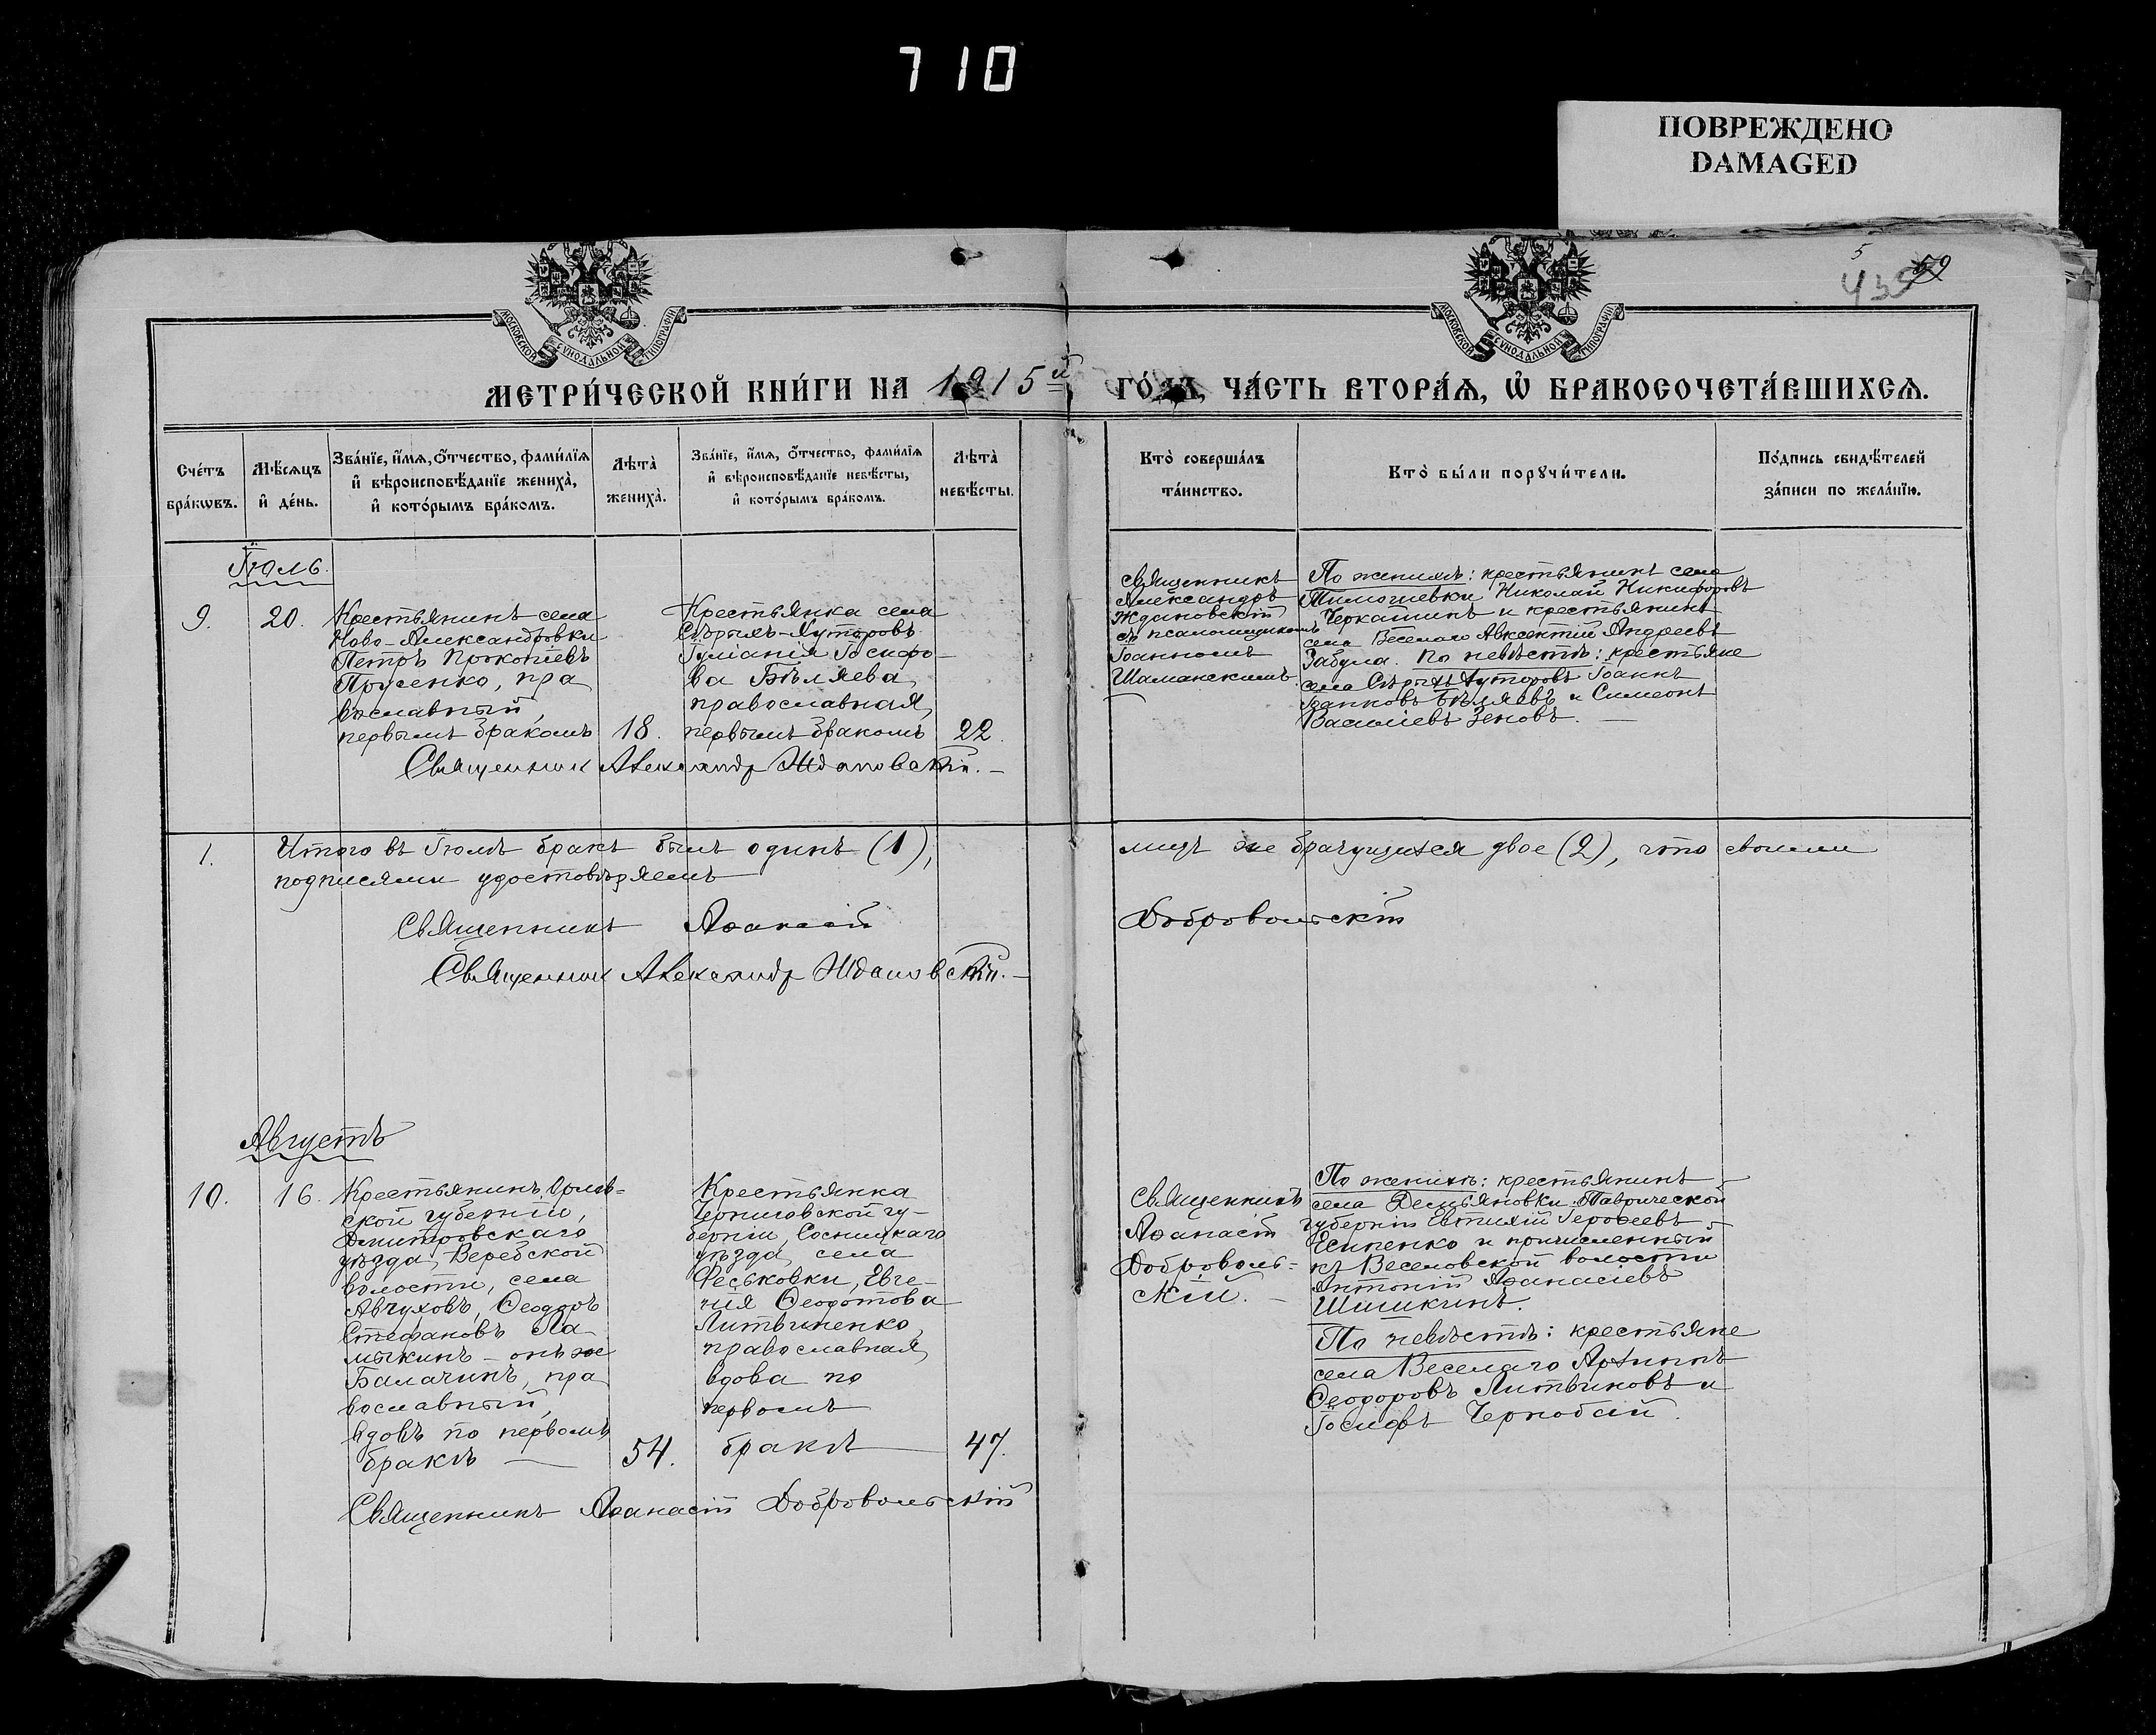 710
ПОВРЕЖДЕНО
DAMAGED
5
435
59
МОСКОВСКОЙ СѴНОДАЛЬНОЙ ТИПОГРАФІИ
МОСКОВСКОЙ СѴНОДАЛЬНОЙ ТИПОГРАФІИ
МЕТРИ́ЧЕСКОЙ КНИ́ГИ НА 1915й ГО́ДЪ, ЧА́СТЬ ВТОРА́Ѧ, Ѽ БРАКОСОЧЕТА́ВШИХСѦ.
Сче́тъ бра́кѡвъ.
Мѣ́сѧцъ и҆ де́нь.
Зва́нїе, и҆́мѧ, ѻ҆́тчество, фами́лїѧ и҆ вѣроисповѣ́данїе жениха̀, и҆ кото́рымъ бра́комъ.
Лѣта̀ жениха̀.
Зва́нїе, и҆́мѧ, ѻ҆́тчество, фами́лїѧ и҆ вѣроисповѣ́данїе невѣ́сты, и҆ кото́рымъ бра́комъ.
Лѣта̀ невѣ́сты.
Кто̀ соверша́лъ та́инство.
Кто̀ бы́ли порꙋчи́тели.
По́дпись свидѣ́телей за́писи по жела́нїю.
Іюль.
9.
20.
Крестьянинъ села
Ново-Александровки
Петръ Прокопіевъ
Прусенко, пра
вославный,
первымъ бракомъ
18.
Крестьянка села
Сѣрыхъ-Хуторовъ
Іуліанія Іосифо-
ва Бѣляева,
православная,
первымъ бракомъ
22.
Священник Александр Ждановскій.
Священникъ
Александръ
Ждановскій
съ псаломщикомъ
Іоанномъ
Шаманскимъ
По женихѣ: крестьянинъ села
Тимошевки Николай Никифоровъ
Черкашинъ и крестьянинъ
села Веселаго Авксентій Андреевъ
Забула. По невѣстѣ: крестьяне
села Сѣрыхъ Хуторовъ Іоаннъ
Бѣляевъ и Симеонъ
Василіевъ Зеновъ.
1.
Итого въ Іюлѣ бракъ былъ одинъ (1),
лицъ же брачущихся двое (2), что своими
подписями удостовѣряемъ
Священникъ Аѳанасій Добровольскій
Священник Александр Ждановскій.
Августъ
10.
16.
Крестьянинъ Орлов=
ской губерніи,
Дмитровскаго
уѣзда, Веребской
волости, села
Авчуховъ, Ѳеодоръ
Стефановъ Ла
мыкинъ - онъ же
Балачинъ, пра
вославный,
вдовъ по первомъ
бракѣ
54.
Крестьянка
Черниговской гу-
берніи, Сосницкаго
уѣзда, села
Феськовки, Евге-
нія Ѳеодотова
Литвиненко,
православная,
вдова по
первомъ
бракѣ
47.
Священникъ Аѳанасій Добровольскій
Священникъ
Аѳанасій
Доброволь=
скій.
По женихѣ: крестьянинъ
села Демьяновки, Таврической
губерніи Евтихій Іероѳеевъ
Есипенко и причисленный
къ Веселовской волости
Антоній Аѳанасіевъ
Шишкинъ.
По невѣстѣ: крестьяне
села Веселаго Архиппъ
Ѳеодоровъ Литвиновъ и
Іосифъ Чернобай.